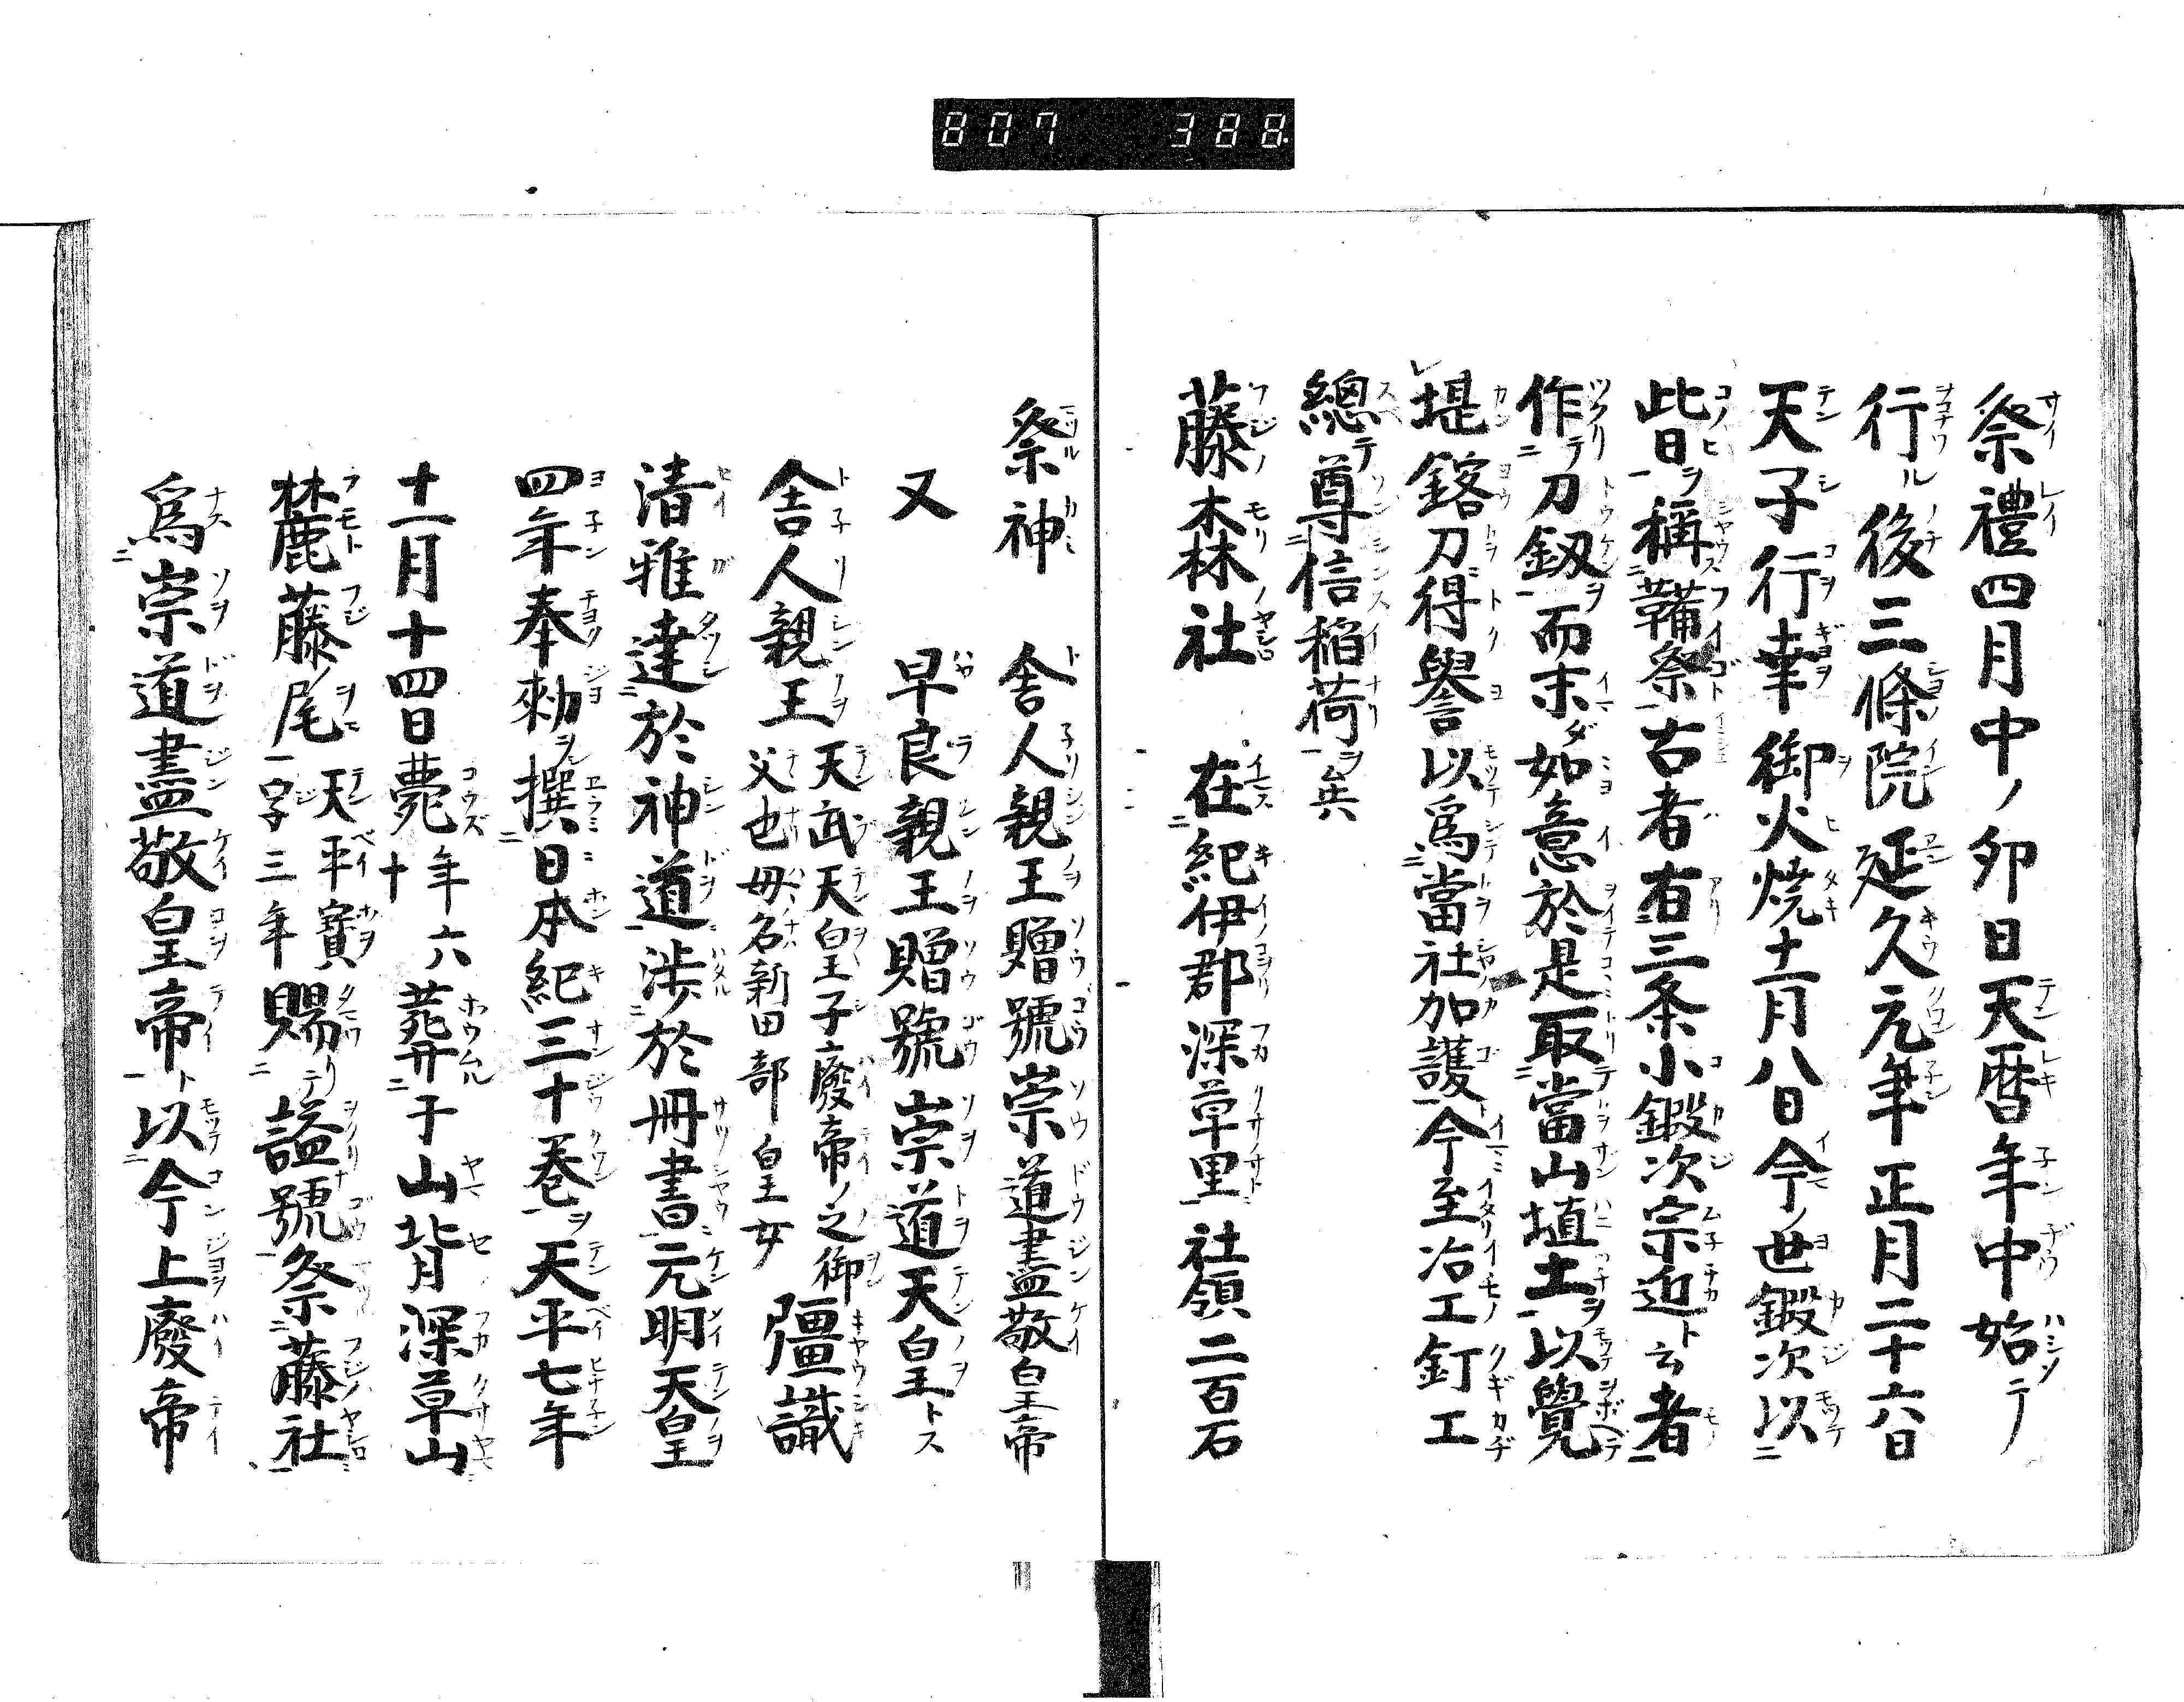 807 388
祭禮四月中ノ卯日天暦年中始テ
行ル後三條院延久元年正月二十六日
天子行幸御火燒十一月八日今ノ世鍛次以
此日ヲ稱鞴祭古者有三条小鍛次宗近ト云者
作テ刀釼ヲ而未タ如意於是取テ當山埴土ヲ以覺
堪鎔刀得譽以爲當社加護今至冶工釘工
總テ尊信稲荷ヲ矣
藤森社 在紀伊郡深草里 社領二百石
祭神 舎人親王贈號崇道盡敬皇帝
又 早良親王贈號崇道天皇トス
舎人親王 天武天皇子廢帝ノ之御
父也母ハ名新田部皇女 彊識
清雅達於神道渉於冊書元明天皇
四年奉勅ヲ撰日本紀三十巻ヲ天平七年
十一月十四日薨年六
十 葬于山背深草山
麓藤ノ尾 天平寳
字三年 賜リテ謚號祭藤社
爲崇道盡敬皇帝ト以今上廢帝